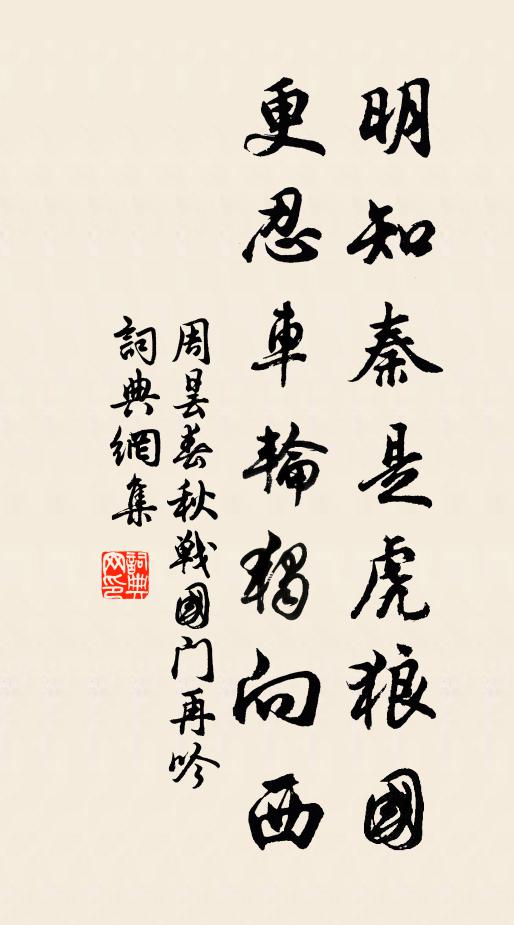 明知秦是虎狼國
更忍車輪獨向西
周曇春秋戰國门再吟
詞典網集
詞典
网印